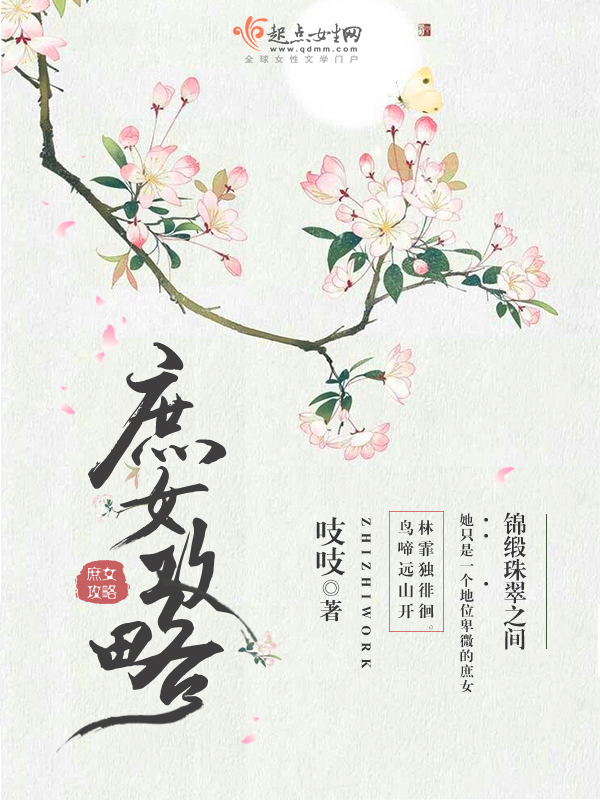 起点女生网
www.qdmm.com
全球女性文学门户
庶女攻略
庶女
攻略
锦缎珠翠之间
她只是一个地位卑微的庶女
林霏独徘徊。
鸟啼远山开
ZHIZHIWORK
吱吱◎著